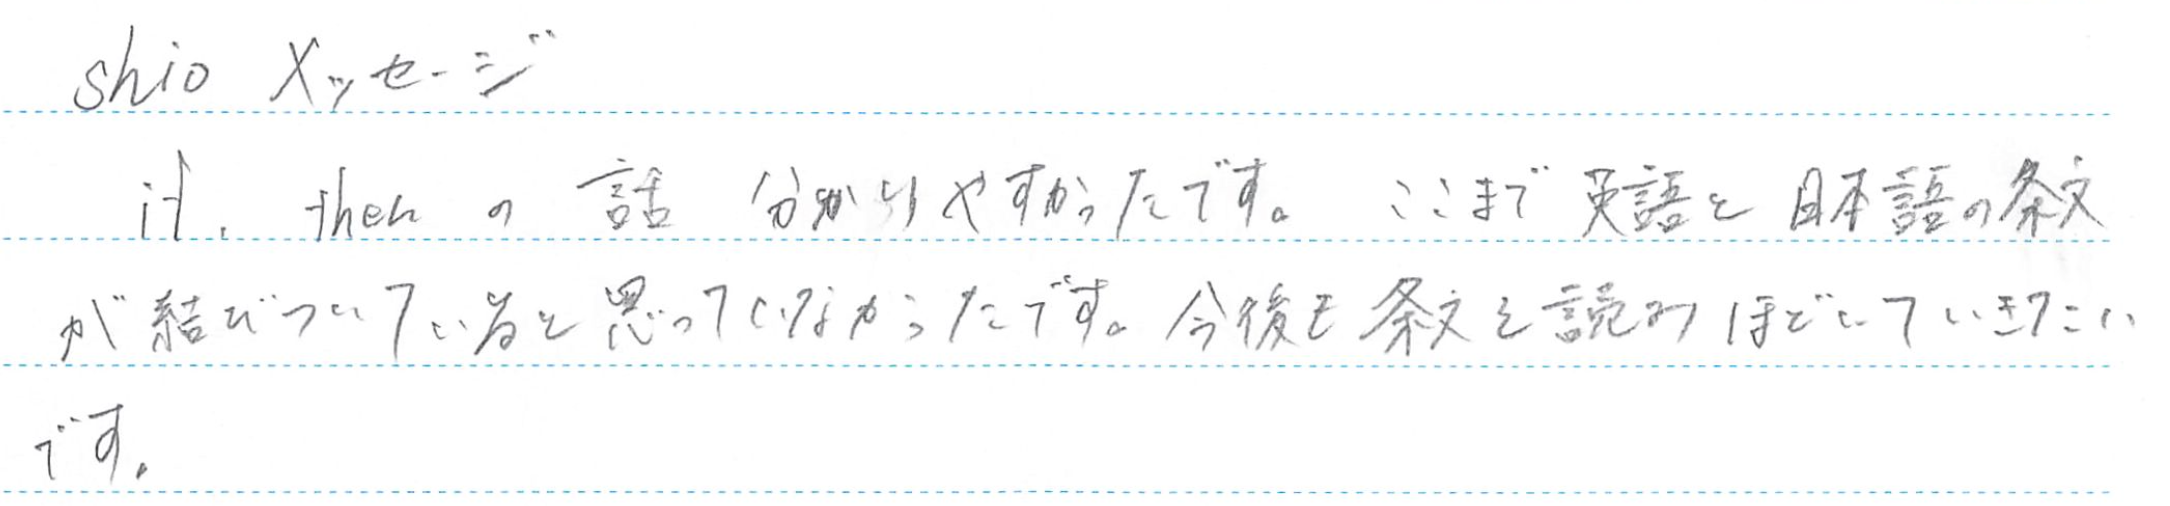 shio メッセージ
if, then の 話 分かりやすかったです。 ここまで 英語と 日本語の条文
が 結びついていると 思っていなかったです。今後も 条文を読みほどいていきたい
です。